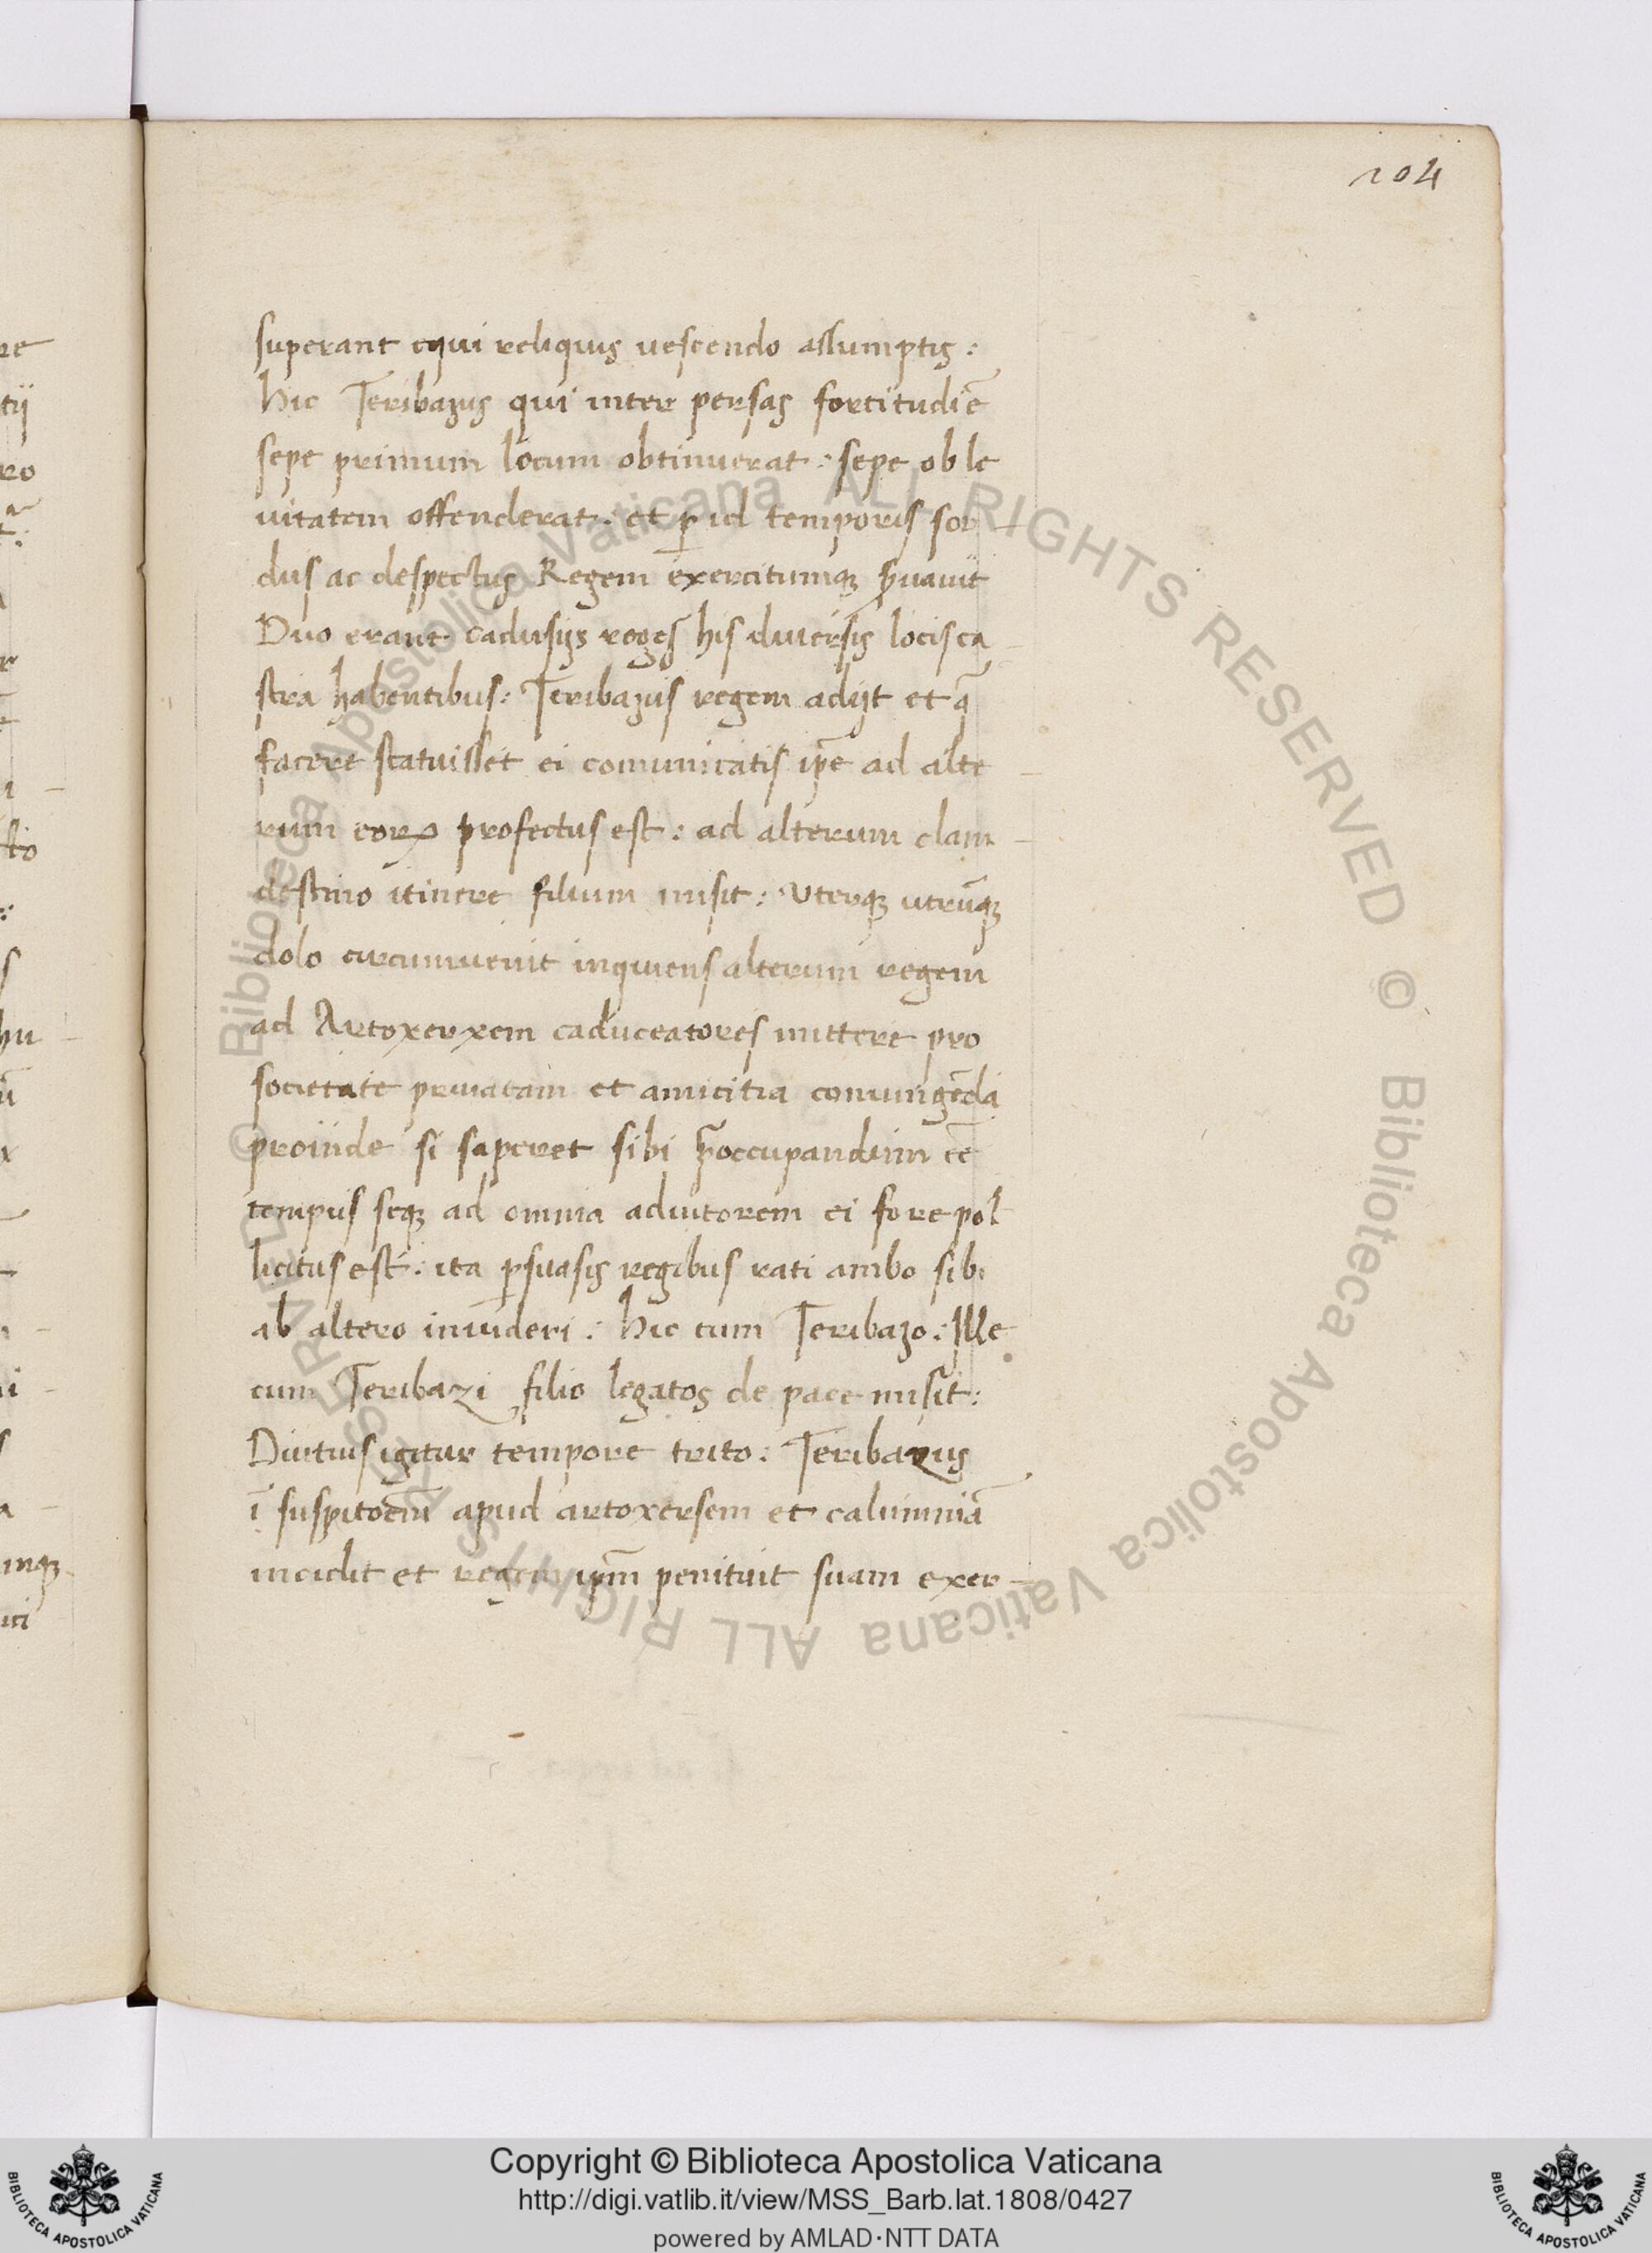 204
superant equi reliquis uescendo assumptis:
hic Teribazus qui inter persas fortitudiē
sepe primum locum obtinuerat: sepe ob le
uitatem offenderat: et ꝑ id temporis sor
dus ac despectus Regem exercitumqꝫ ẜuauit
Duo erant cadusijs reges his diuersis locis ca
stra habentibus: Teribazus regem adijt et q̄
facere statuisset ei comunicatis ip̄e ad alte
rum eoꝝ profectus est: ad alterum clam
destino itinere filium misit: Vterqꝫ utrūqꝫ
dolo circumuenit inquiens alterum regem
ad Artoxerxem caduceatores mittere pro
societate priuatam et amicitia coniungēda
proinde si saperet sibi p̄occupandum eē
tempus seqꝫ ad omnia adiutorem ei fore pol
licitus est: ita ꝑsuasis regibus rati ambo sibi
ab altero inuideri: hic cum Teribazo: Ille
cum Teribazi filio legatos de pace misit:
Diutius igitur tempore trito: Teribazus
ī suspitoēm apud artoxersem et calumniā
incidit et regem ip̄m penituit suam exer
© Biblioteca Apostolica Vaticana ALL RIGHTS RESERVED © Biblioteca Apostolica Vaticana ALL RIGHTS RESERVED
Copyright © Biblioteca Apostolica Vaticana
http://digi.vatlib.it/view/MSS_Barb.lat.1808/0427
powered by AMLAD·NTT DATA
BIBLIOTECA APOSTOLICA VATICANA
BIBLIOTECA APOSTOLICA VATICANA